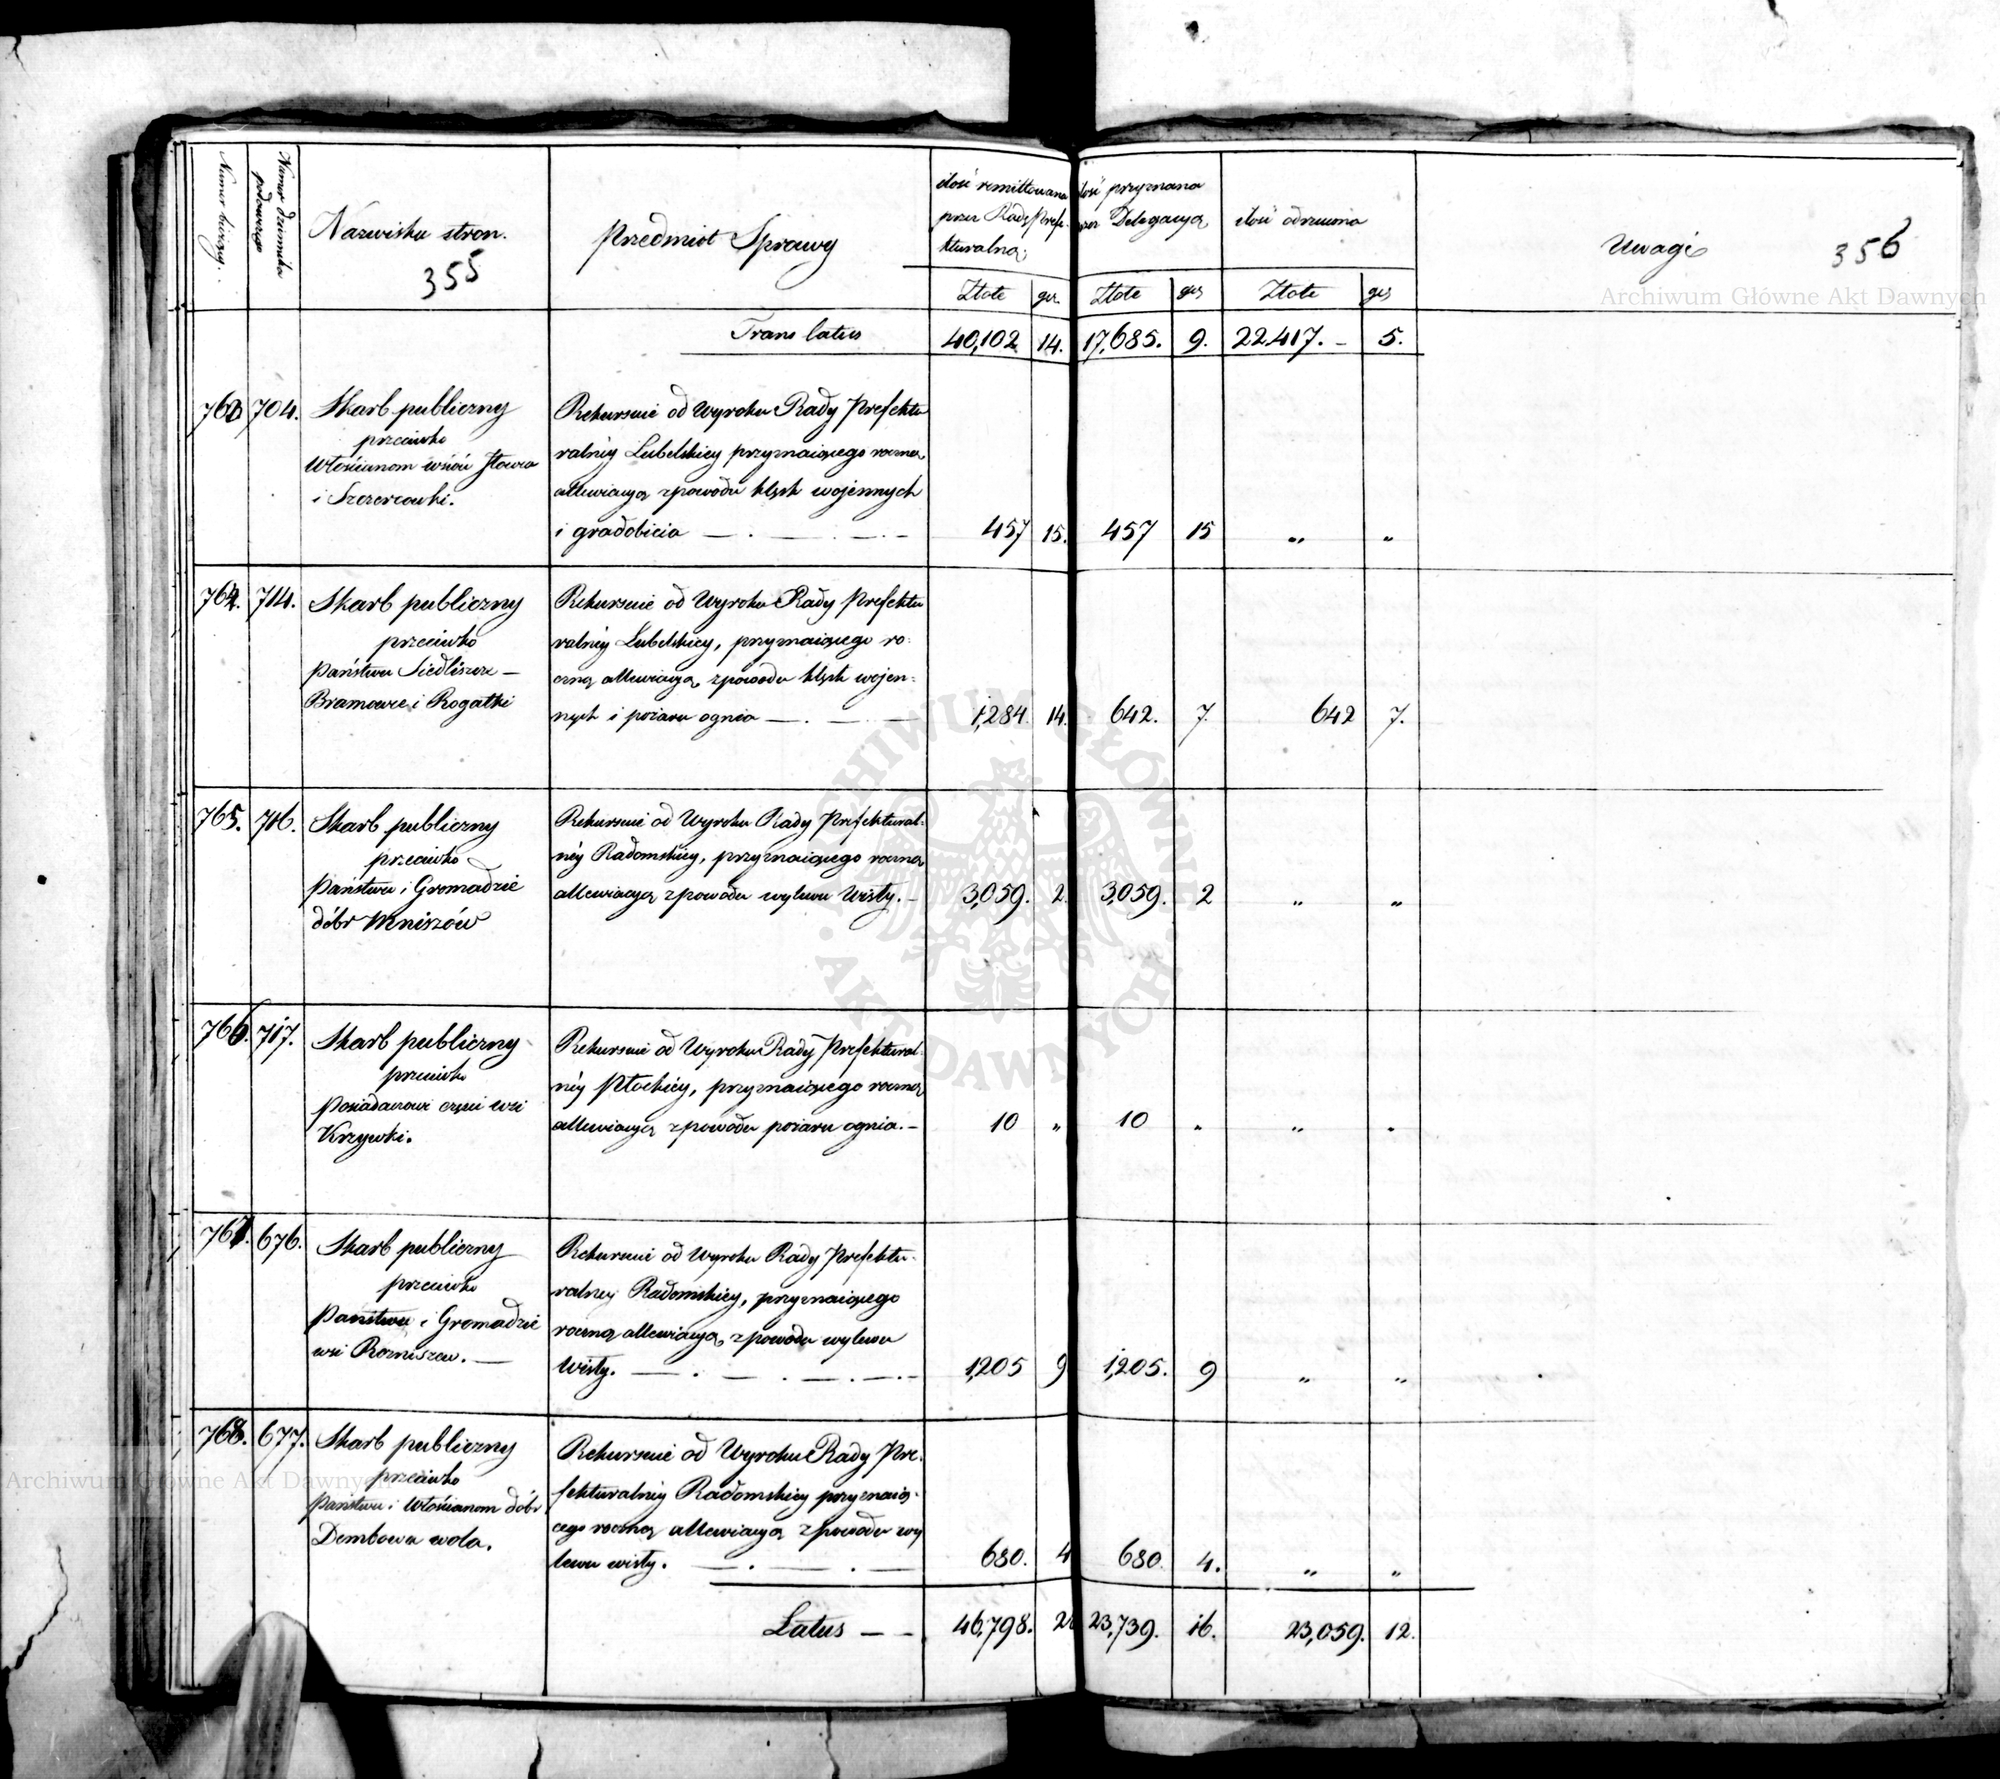 Numer bieżący.
Numer dziennika podawczego
Nazwiska stron.
355
Przedmiot Sprawy
ilość remittowana
przez Radę Prefe-
kturalną
Złote gr.
ilość przyznana
przez Delegacyą
Złote gr
ilość odrzucona
Złote gr
Uwagi
356
Archiwum Główne Akt Dawnych
Trans latus 40,102 14. 17,685. 9. 22,417. – 5.
763 704. Skarb publiczny
przeciwko
Włościanom wsiów
i Szczercowki.
Rekursuie od Wyroku Rady Prefektu
ralnéy Lubelskiey przyznaiącego roczną
allewiacyą z powodu klęsk wojennych
i gradobicia — . — . — . – 457 15. 457 15 „ „
764. 714. Skarb publiczny
przeciwko
Państwu Siedliszcze –
Bramowce i Rogatki
Rekursuie od Wyroku Rady Prefektu
ralnéy Lubelskiey, przyznaiącego ro-
czną allewiacyą, z powodu klęsk wojen-
nych i pożaru ognia — . — . — 1,284 14. 642. 7. 642 7.
765. 716. Skarb publiczny
przeciwko
Państwu i Gromadzie
dóbr Mniszów
Rekursuie od Wyroku Rady Prefektural-
néy Radomskiey, przyznaiącego roczną
allewiacyą z powodu wylewu Wisły. – 3,059. 2. 3,059. 2 „ „
766. 717. Skarb publiczny
przeciwko
Posiadaczowi części wsi
Krzywki.
Rekursuie od Wyroku Rady Prefektural-
néy Płockiey, przyznaiącego roczną
allewiacyą z powodu pożaru ognia. – 10 „ 10 „ „ „
767. 676. Skarb publiczny
przeciwko
Państwu i Gromadzie
wsi Rozniszew. —
Rekursuie od Wyroku Rady Prefektu-
ralney Radomskiey, przyznaiącego
roczną allewiacyą, z powodu wylewu
Wisły. — . — . — . — . – 1,205 9 1,205. 9 „ „
768. 677. Skarb publiczny
przeciwko
Państwu i Włościanom dóbr
Dembowa wola.
Rekursuie od Wyroku Rady Pre-
fekturalnéy Radomskiey przyznaią-
cego roczną allewiacyą z powodu wy
lewu wisły. — . — . — 680. 4 680 4. „ „
Latus — – 46,798. 23,739. 16. 23,059. 12.
Archiwum Główne Akt Dawnych
ARCHIWUM GŁÓWNE
· AKT DAWNYCH ·